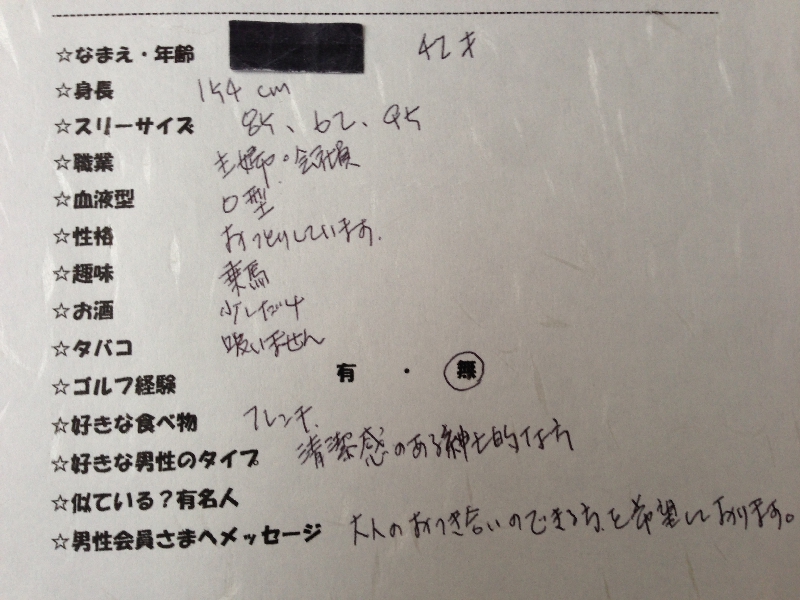 ☆なまえ・年齢 42才
☆身長 154cm
☆スリーサイズ 85、62、95
☆職業 主婦・会社員
☆血液型 O型
☆性格 おっとりしています。
☆趣味 乗馬
☆お酒 少しだけ
☆タバコ 吸いません
☆ゴルフ経験 有・無
☆好きな食べ物 フレンチ
☆好きな男性のタイプ 清潔感のある紳士的な方
☆似ている？有名人
☆男性会員さまへメッセージ 大人のおつき合いのできる方を希望しております。